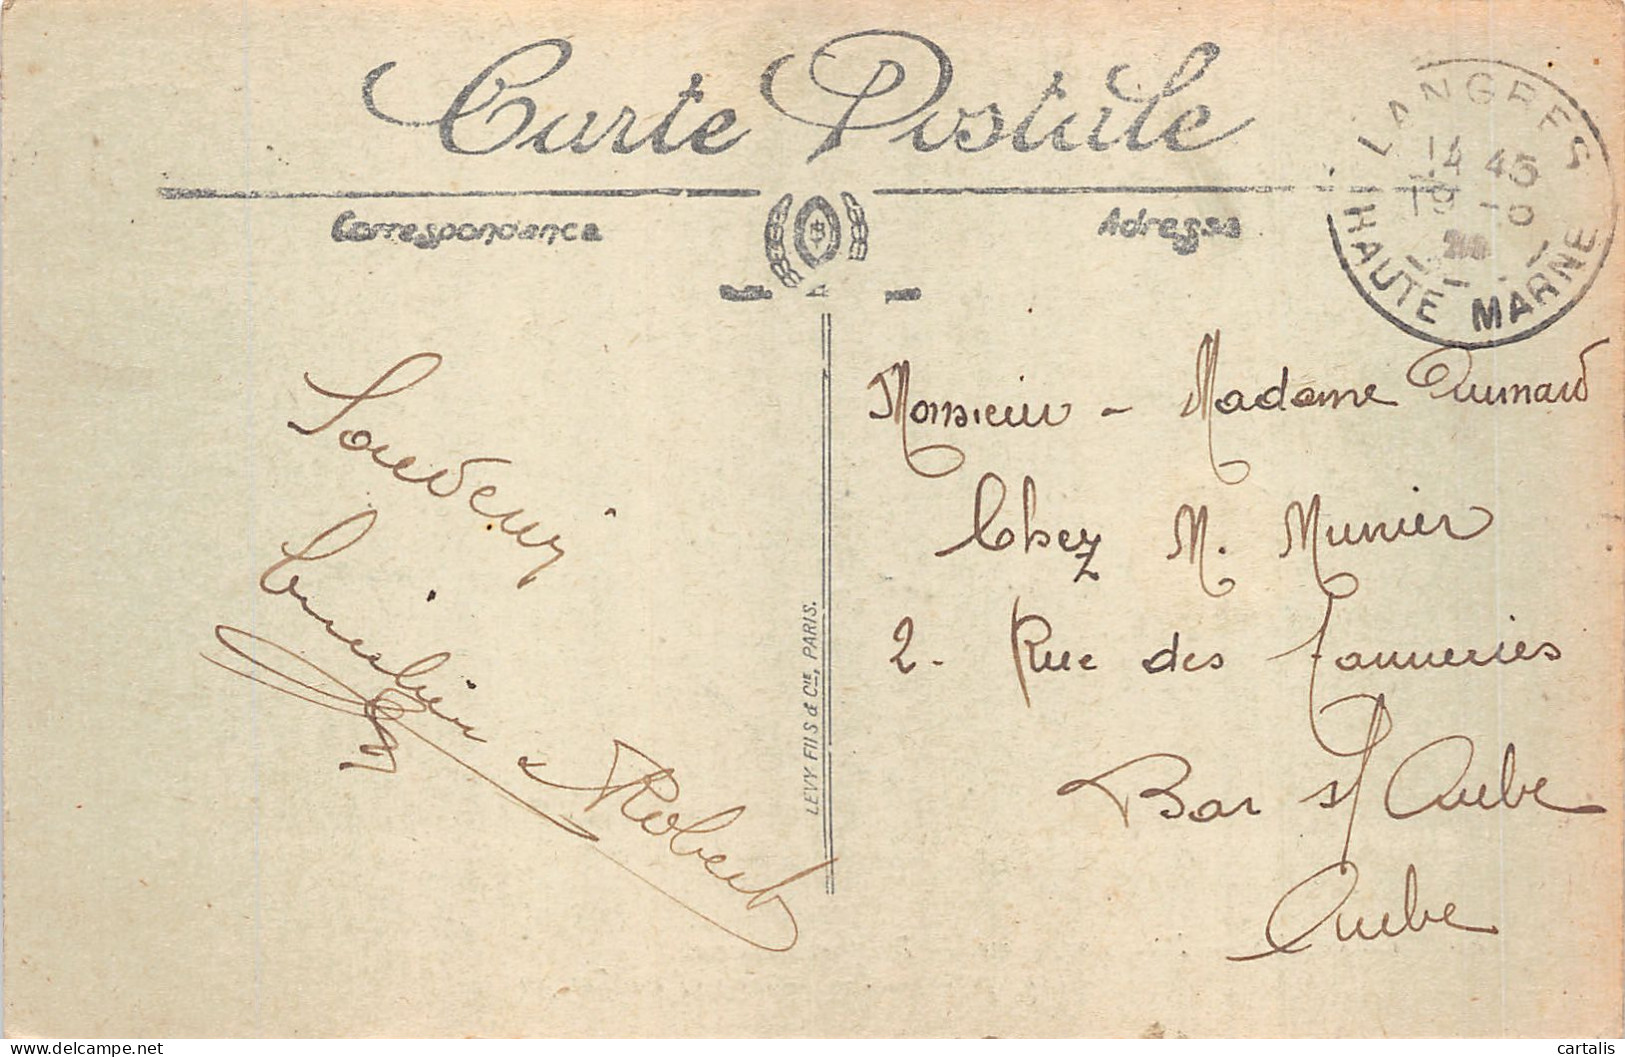 Carte Postale
Correspondance
Adresse
LANGRES
14 45
19
HAUTE MARNE
Souvenir
& Robert
LEVY FILS & CIE, PARIS.
Monsieur - Madame
Chez M. Munier
2 - Rue des Tanneries
Bar s/ Aube
Aube
cartalis